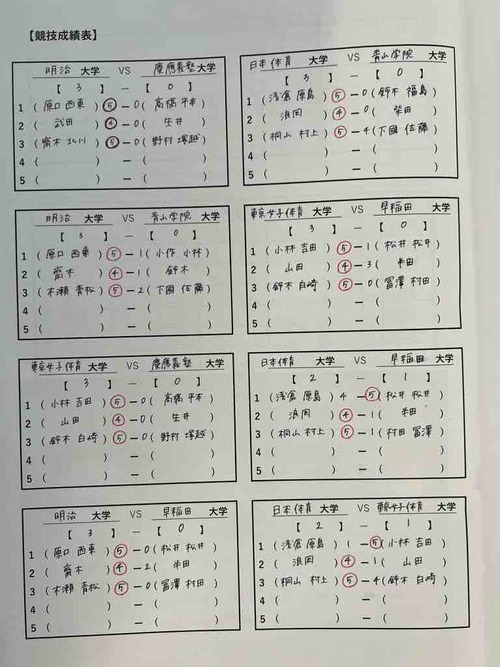 【競技成績表】
明治 大学 VS 慶應義塾 大学
【 3 】 — 【 0 】
1 ( 原口 西東 ) ⑤ — 0 ( 高橋 平本 )
2 ( 武田 ) ④ — 0 ( 生井 )
3 ( 齋木 北川 ) ⑤ — 0 ( 野村 塚越 )
4 ( ) — ( )
5 ( ) — ( )
日本体育 大学 VS 青山学院 大学
【 3 】 — 【 0 】
1 ( 浅倉 原島 ) ⑤ — 0 ( 鈴木 福島 )
2 ( 浪岡 ) ④ — 0 ( 柴田 )
3 ( 桐山 村上 ) ⑤ — 4 ( 下國 佐藤 )
4 ( ) — ( )
5 ( ) — ( )
明治 大学 VS 青山学院 大学
【 3 】 — 【 0 】
1 ( 原口 西東 ) ⑤ — 1 ( 小作 小林 )
2 ( 齋木 ) ④ — 1 ( 鈴木 )
3 ( 木瀬 青松 ) ⑤ — 2 ( 下國 佐藤 )
4 ( ) — ( )
5 ( ) — ( )
東京女子体育 大学 VS 早稲田 大学
【 3 】 — 【 0 】
1 ( 小林 吉田 ) ⑤ — 1 ( 松井 松井 )
2 ( 山田 ) ④ — 3 ( 半田 )
3 ( 鈴木 白崎 ) ⑤ — 0 ( 冨澤 村田 )
4 ( ) — ( )
5 ( ) — ( )
東京女子体育 大学 VS 慶應義塾 大学
【 3 】 — 【 0 】
1 ( 小林 吉田 ) ⑤ — 0 ( 高橋 平本 )
2 ( 山田 ) ④ — 0 ( 生井 )
3 ( 鈴木 白崎 ) ⑤ — 0 ( 野村 塚越 )
4 ( ) — ( )
5 ( ) — ( )
日本体育 大学 VS 早稲田 大学
【 2 】 — 【 1 】
1 ( 浅倉 原島 ) 4 — ⑤ ( 松井 松井 )
2 ( 浪岡 ) ④ — 1 ( 半田 )
3 ( 桐山 村上 ) ⑤ — 1 ( 村田 冨澤 )
4 ( ) — ( )
5 ( ) — ( )
明治 大学 VS 早稲田 大学
【 3 】 — 【 0 】
1 ( 原口 西東 ) ⑤ — 0 ( 松井 松井 )
2 ( 齋木 ) ④ — 2 ( 半田 )
3 ( 木瀬 青松 ) ⑤ — 0 ( 冨澤 村田 )
4 ( ) — ( )
5 ( ) — ( )
日本体育 大学 VS 東京女子体育 大学
【 2 】 — 【 1 】
1 ( 浅倉 原島 ) 1 — ⑤ ( 小林 吉田 )
2 ( 浪岡 ) ④ — 1 ( 山田 )
3 ( 桐山 村上 ) ⑤ — 4 ( 鈴木 白崎 )
4 ( ) — ( )
5 ( ) — ( )